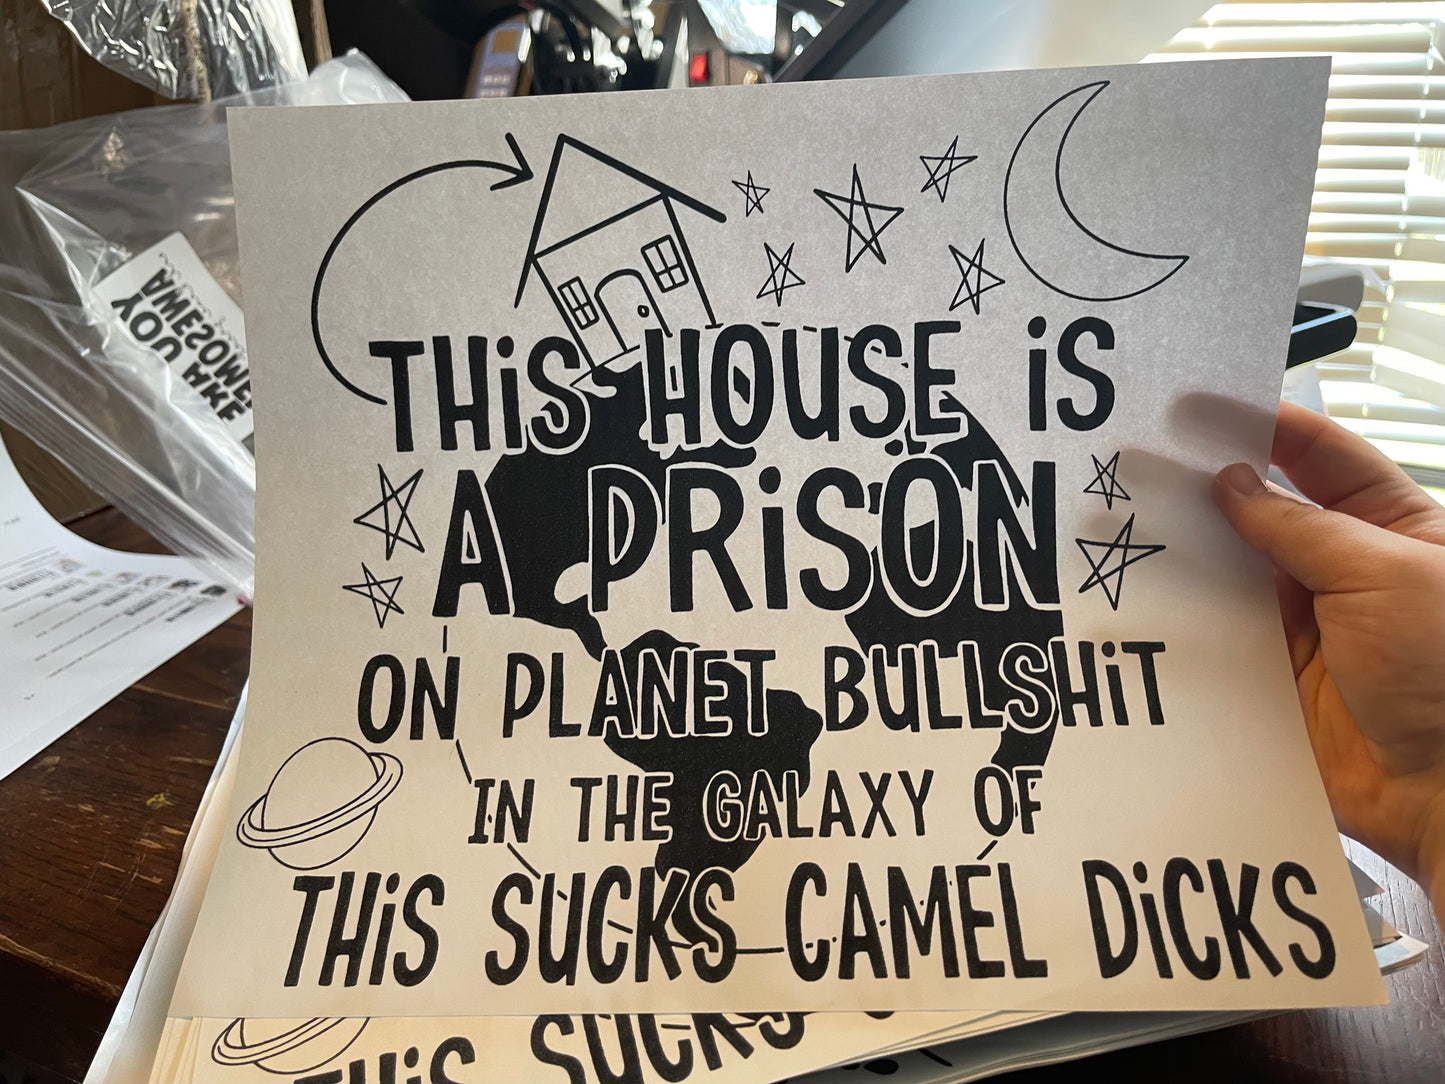 THiS HOUSE iS
A PRiSON
ON PLANET BULLSHiT
IN THE GALAXY OF
THiS SUCKS CAMEL DiCKS
YOU ARE
AWESOME
THiS SUCKS